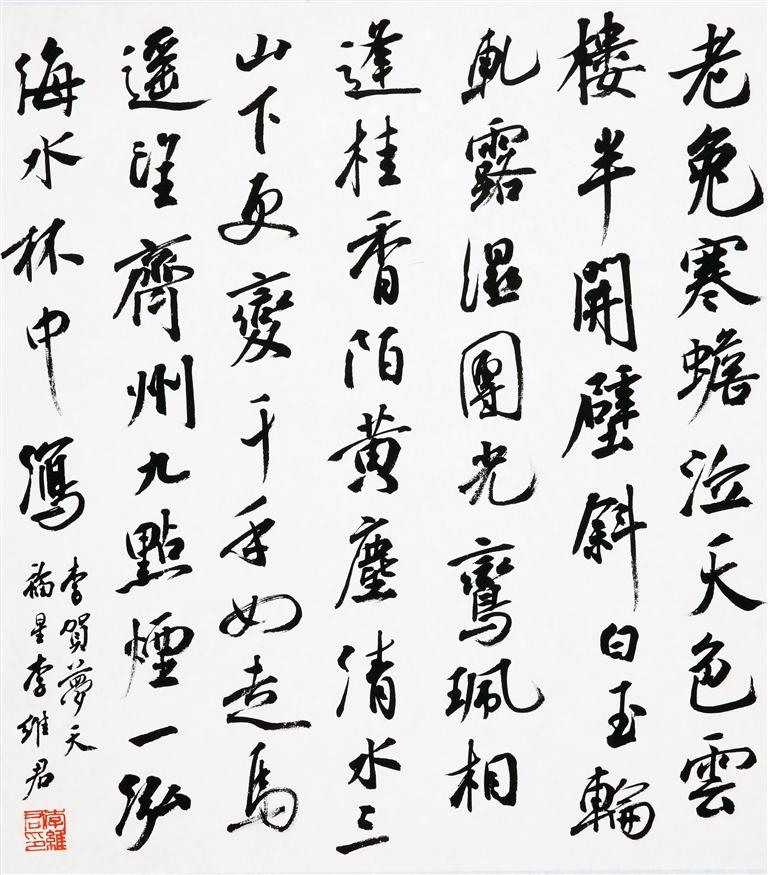 老兔寒蟾泣天色雲
樓半開壁斜白玉輪
軋露湿團光鸞珮相
逢桂香陌黃塵清水三
山下更變千年如走馬
遙望齊州九點煙一泓
海水杯中瀉
李賀夢天
福星李維君
李維君印